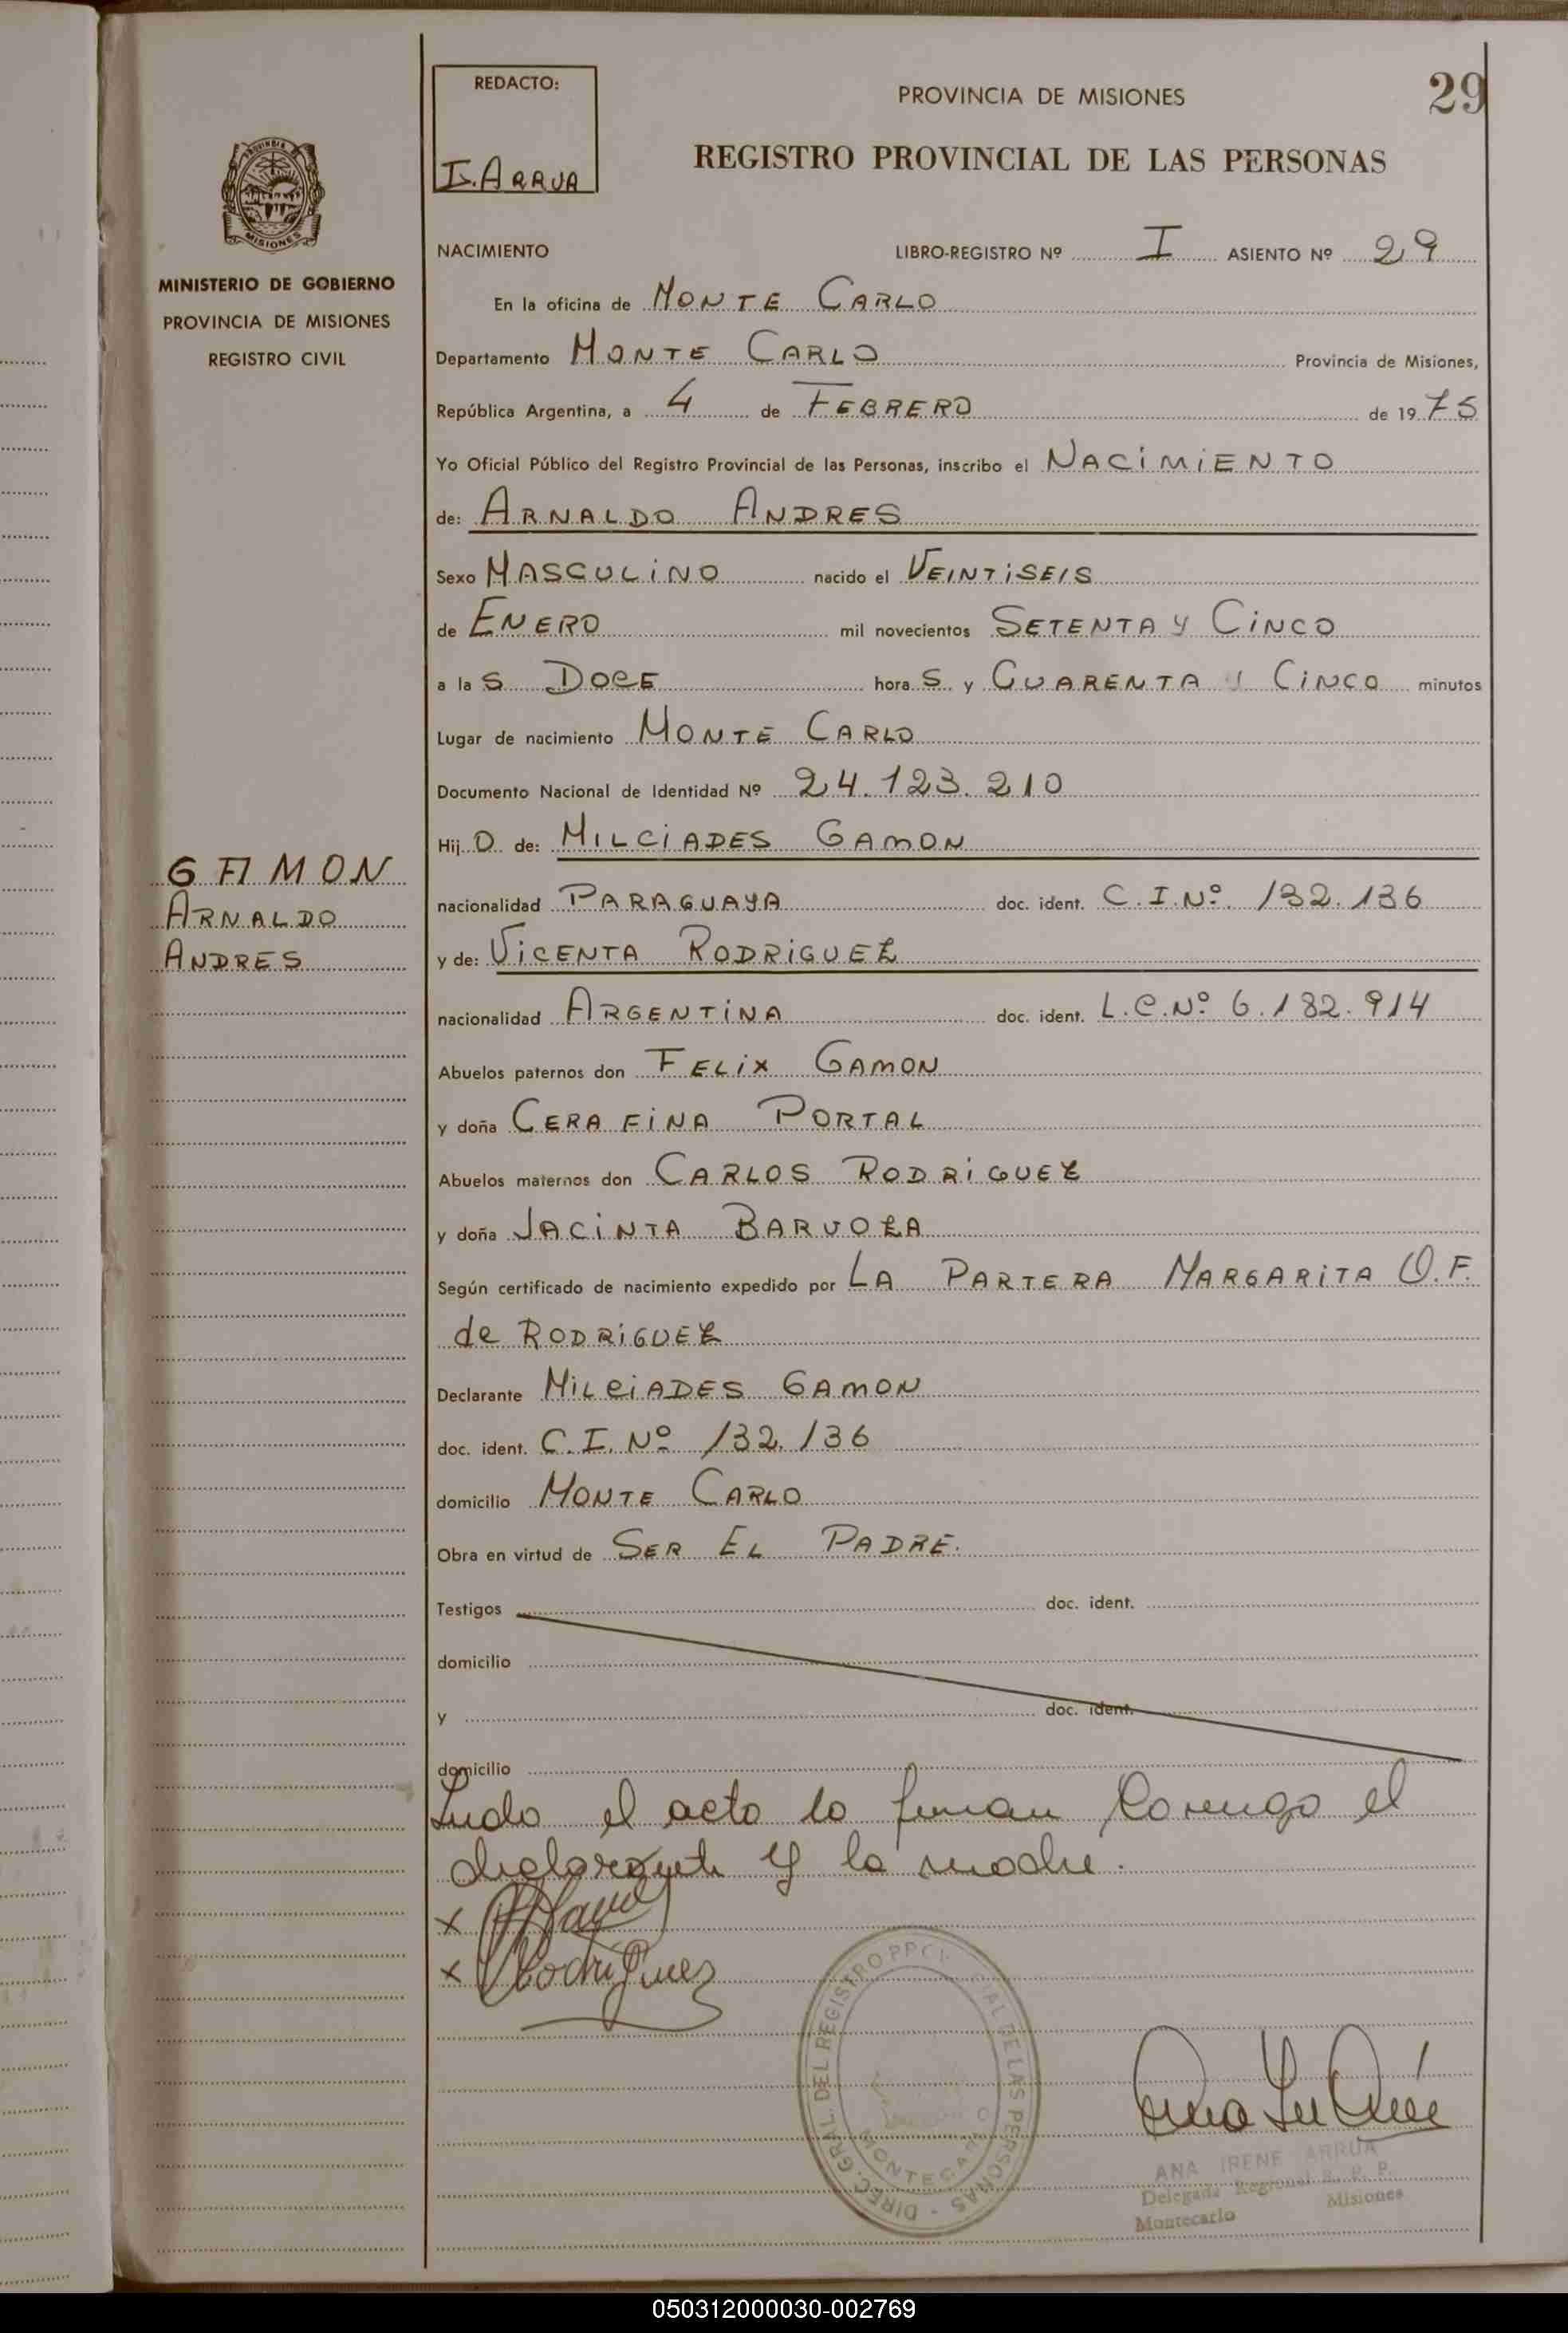 REDACTO:
I. ARRUA
PROVINCIA DE MISIONES
29
REGISTRO PROVINCIAL DE LAS PERSONAS
PROVINCIA DE
MISIONES
MINISTERIO DE GOBIERNO
PROVINCIA DE MISIONES
REGISTRO CIVIL
GAMON
ARNALDO
ANDRES
NACIMIENTO LIBRO-REGISTRO Nº I ASIENTO Nº 29
En la oficina de MONTE CARLO
Departamento MONTE CARLO Provincia de Misiones,
República Argentina, a 4 de FEBRERO de 1975
Yo Oficial Público del Registro Provincial de las Personas, inscribo el NACIMIENTO
de: ARNALDO ANDRES
Sexo MASCULINO nacido el VEINTISEIS
de ENERO mil novecientos SETENTA Y CINCO
a las DOCE horas y CUARENTA Y CINCO minutos
Lugar de nacimiento MONTE CARLO
Documento Nacional de Identidad Nº 24.123.210
HijO de: MILCIADES GAMON
nacionalidad PARAGUAYA doc. ident. C.I.Nº. 132.136
y de: VICENTA RODRIGUEZ
nacionalidad ARGENTINA doc. ident. L.C.Nº 6.182.914
Abuelos paternos don FELIX GAMON
y doña CERAFINA PORTAL
Abuelos maternos don CARLOS RODRIGUEZ
y doña JACINTA BARUOZA
Según certificado de nacimiento expedido por LA PARTERA MARGARITA O.F.
de RODRIGUEZ
Declarante MILCIADES GAMON
doc. ident. C.I. Nº 132.136
domicilio MONTE CARLO
Obra en virtud de SER EL PADRE.
Testigos doc. ident.
domicilio
y doc. ident.
domicilio
Leido el acto lo firman Conmigo el
declarante y la madre.
x
x Rodriguez
DIREC. GRAL. DEL REGISTRO PROVINCIAL DE LAS PERSONAS -
MONTECARLO
ANA IRENE ARRUA
Delegada Regional R. P. P.
Montecarlo Misiones
050312000030-002769